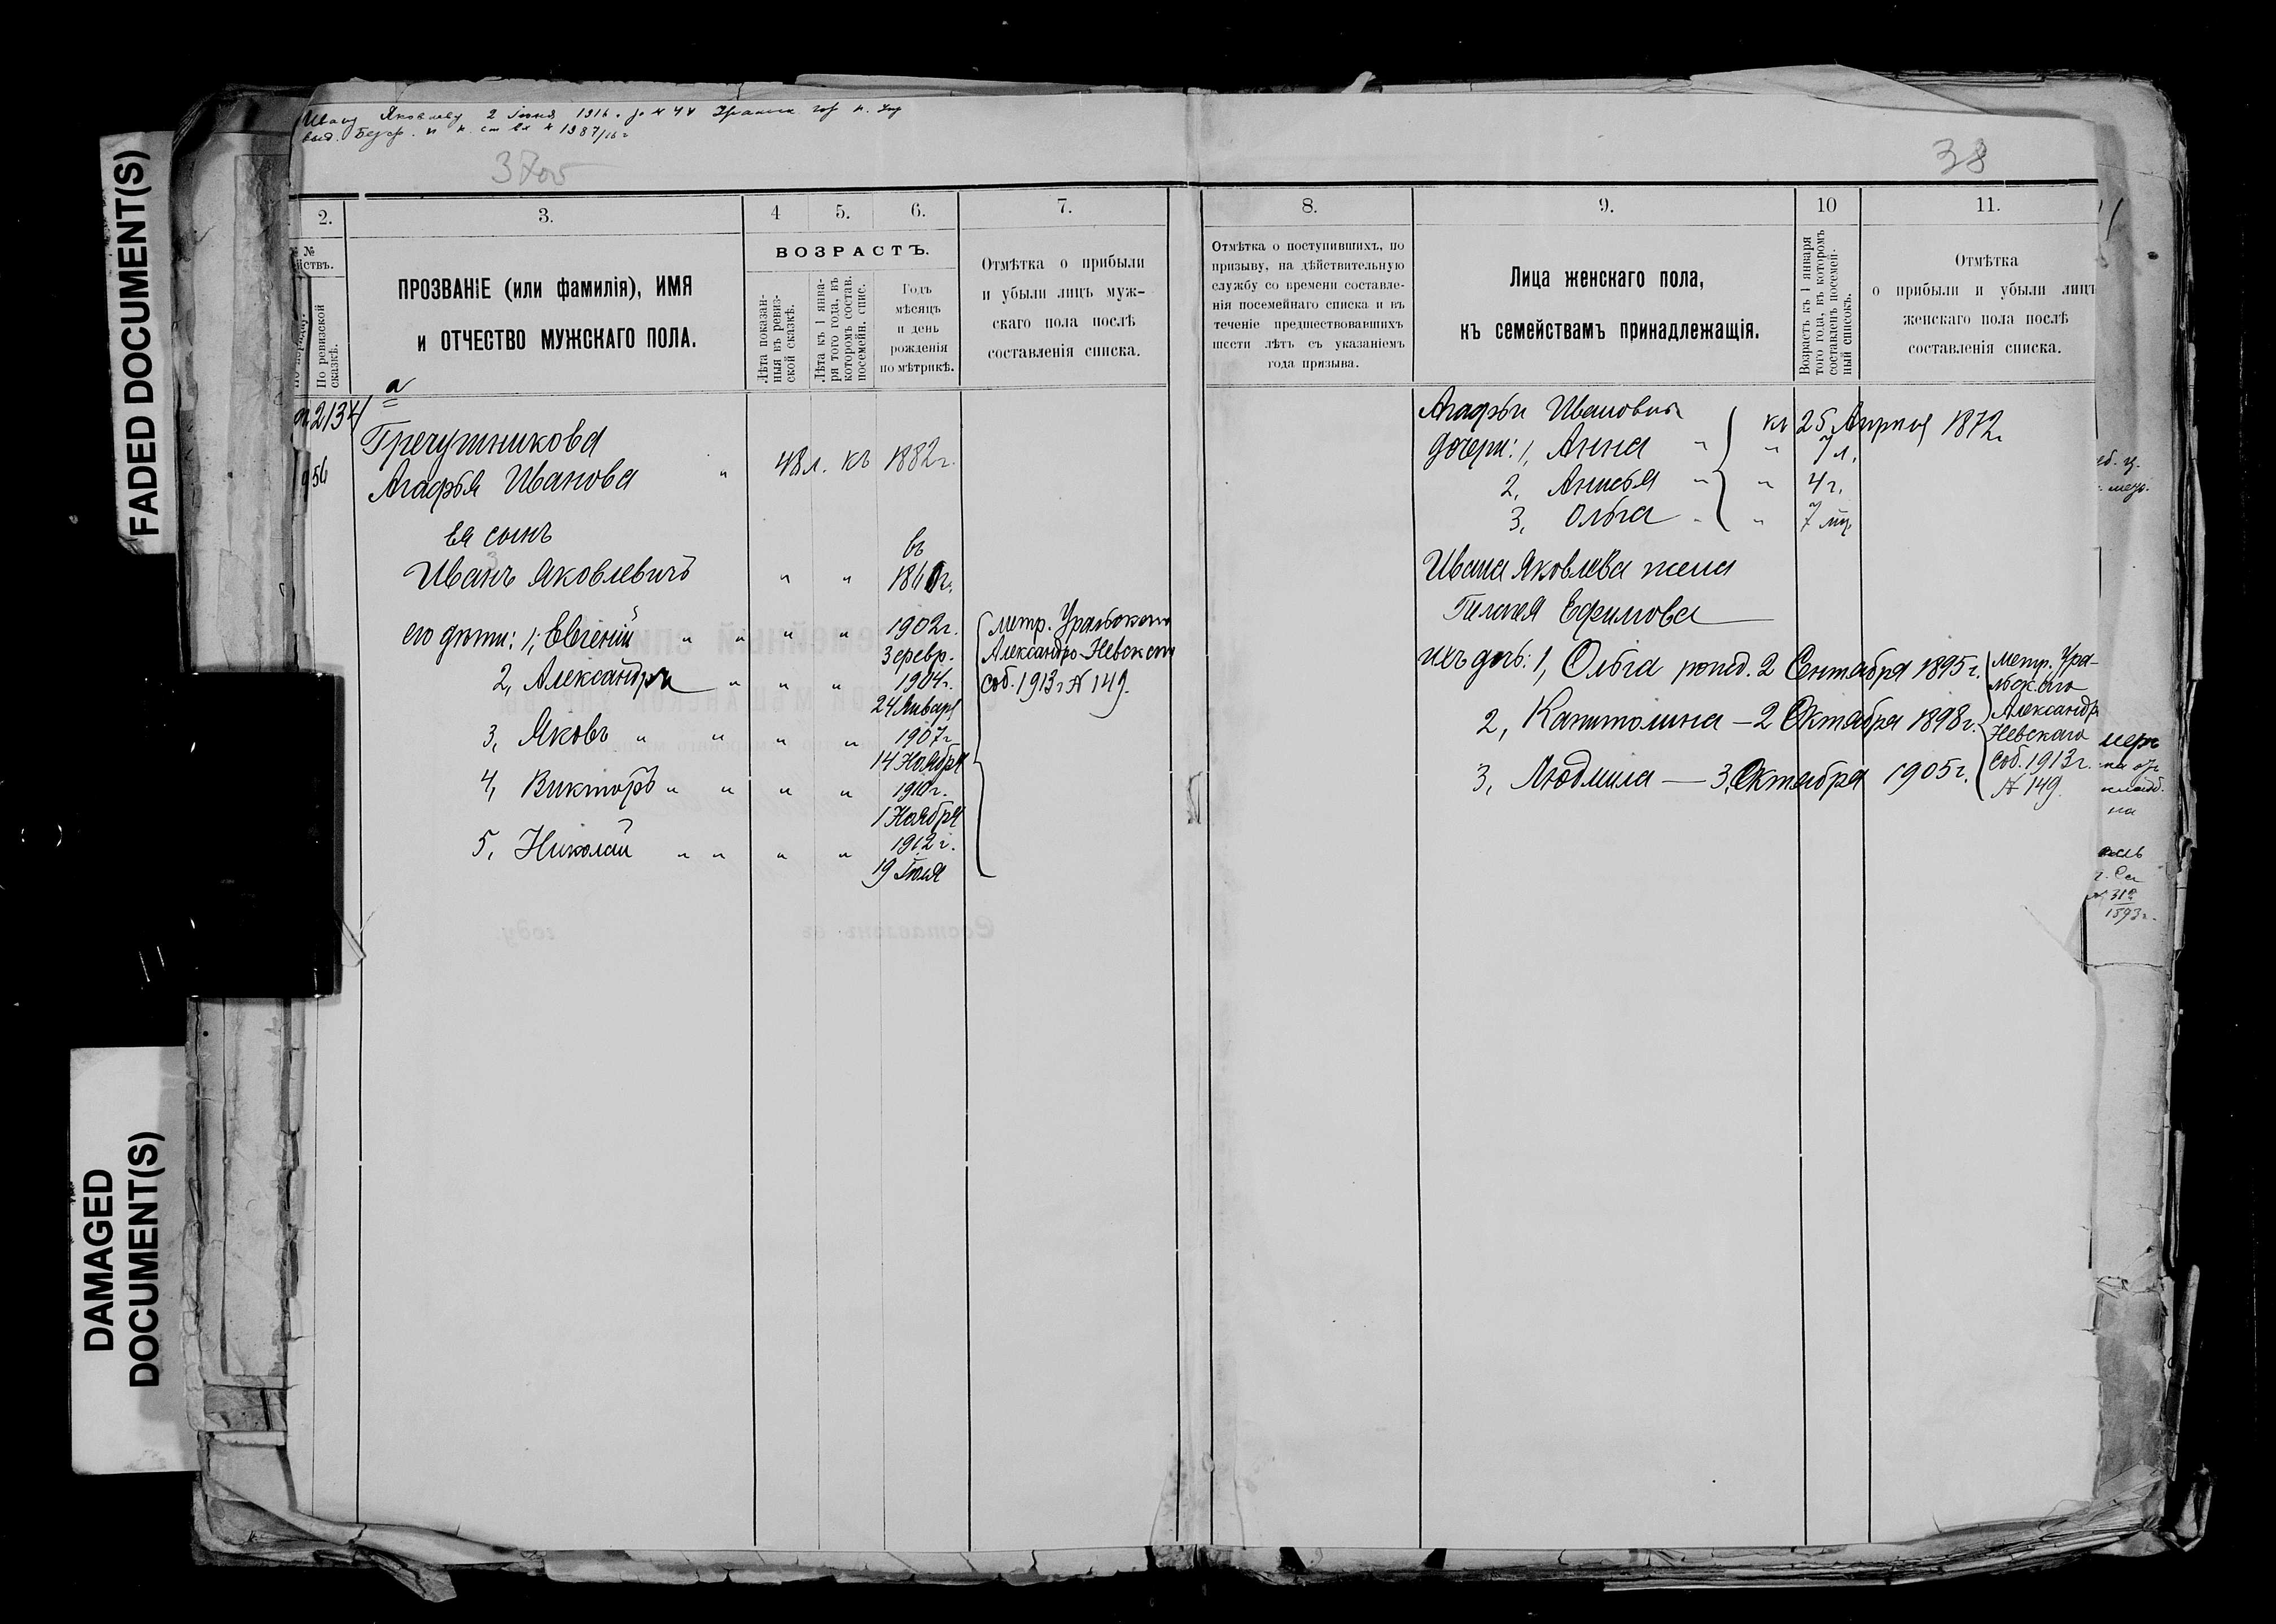 FADED DOCUMENT(S)
DAMAGED
DOCUMENT(S)
Ивану Яковлеву 2 Іюня 1916
38
2.
3.
4
5.
6.
7.
№
ВОЗРАСТЪ.
ПРОЗВАНІЕ (или фамилія), ИМЯ
и ОТЧЕСТВО МУЖСКАГО ПОЛА.
По ревизской
сказкѣ.
Лѣта показан-
ныя въ ревиз-
ской сказкѣ.
Лѣта къ 1 янва-
ря того года, въ
которомъ состав.
посемейн. спис.
Годъ
мѣсяцъ
и день
рожденія
по мѣтрикѣ.
Отмѣтка о прибыли
и убыли лицъ муж-
скаго пола послѣ
составленія списка.
а
2134
Гречушникова
Агафья Иванова " 48 л. къ 1882 г.
56
Ея сынъ
въ
Иванъ Яковлевичъ " " 1860 г.
его дѣти: 1, Евгеній " " " " 1902 г.
3 февр.
2, Александръ " " " 1904 г.
24 Января
3, Яковъ " " " " 1907 г.
14 Ноября
4, Викторъ " " " " 1910 г.
1 Ноября
5, Николай " " " " 1912 г.
19 Іюля
метр. Уральскаго
Александро-Невскаго
Соб. 1913 г. № 149.
8.
9.
10
11.
Отмѣтка о поступившихъ, по
призыву, на дѣйствительную
службу со времени составле-
нія посемейнаго списка и въ
теченіе предшествовавшихъ
шести лѣтъ съ указаніемъ
года призыва.
Лица женскаго пола,
къ семействамъ принадлежащія.
Возрастъ къ 1 января
того года, въ которомъ
составленъ посемей-
ный списокъ.
Отмѣтка
о прибыли и убыли лицъ
женскаго пола послѣ
составленія списка.
Агафьи Ивановой къ 25 Апреля 1872 г.
дочери: 1, Анна " " 7 л.
2, Анисья " " 4 г.
3, Ольга " " 7 мц.
Ивана Яковлева жена
Гликерія Ефимова
ихъ дочь: 1, Ольга рожд. 2 Сентября 1895 г.
2, Капитолина — 2 Октября 1898 г.
3, Людмила — 3 Октября 1905 г.
метр. Ура-
льскаго
Александро
Невскаго
Соб. 1913 г.
№ 149.